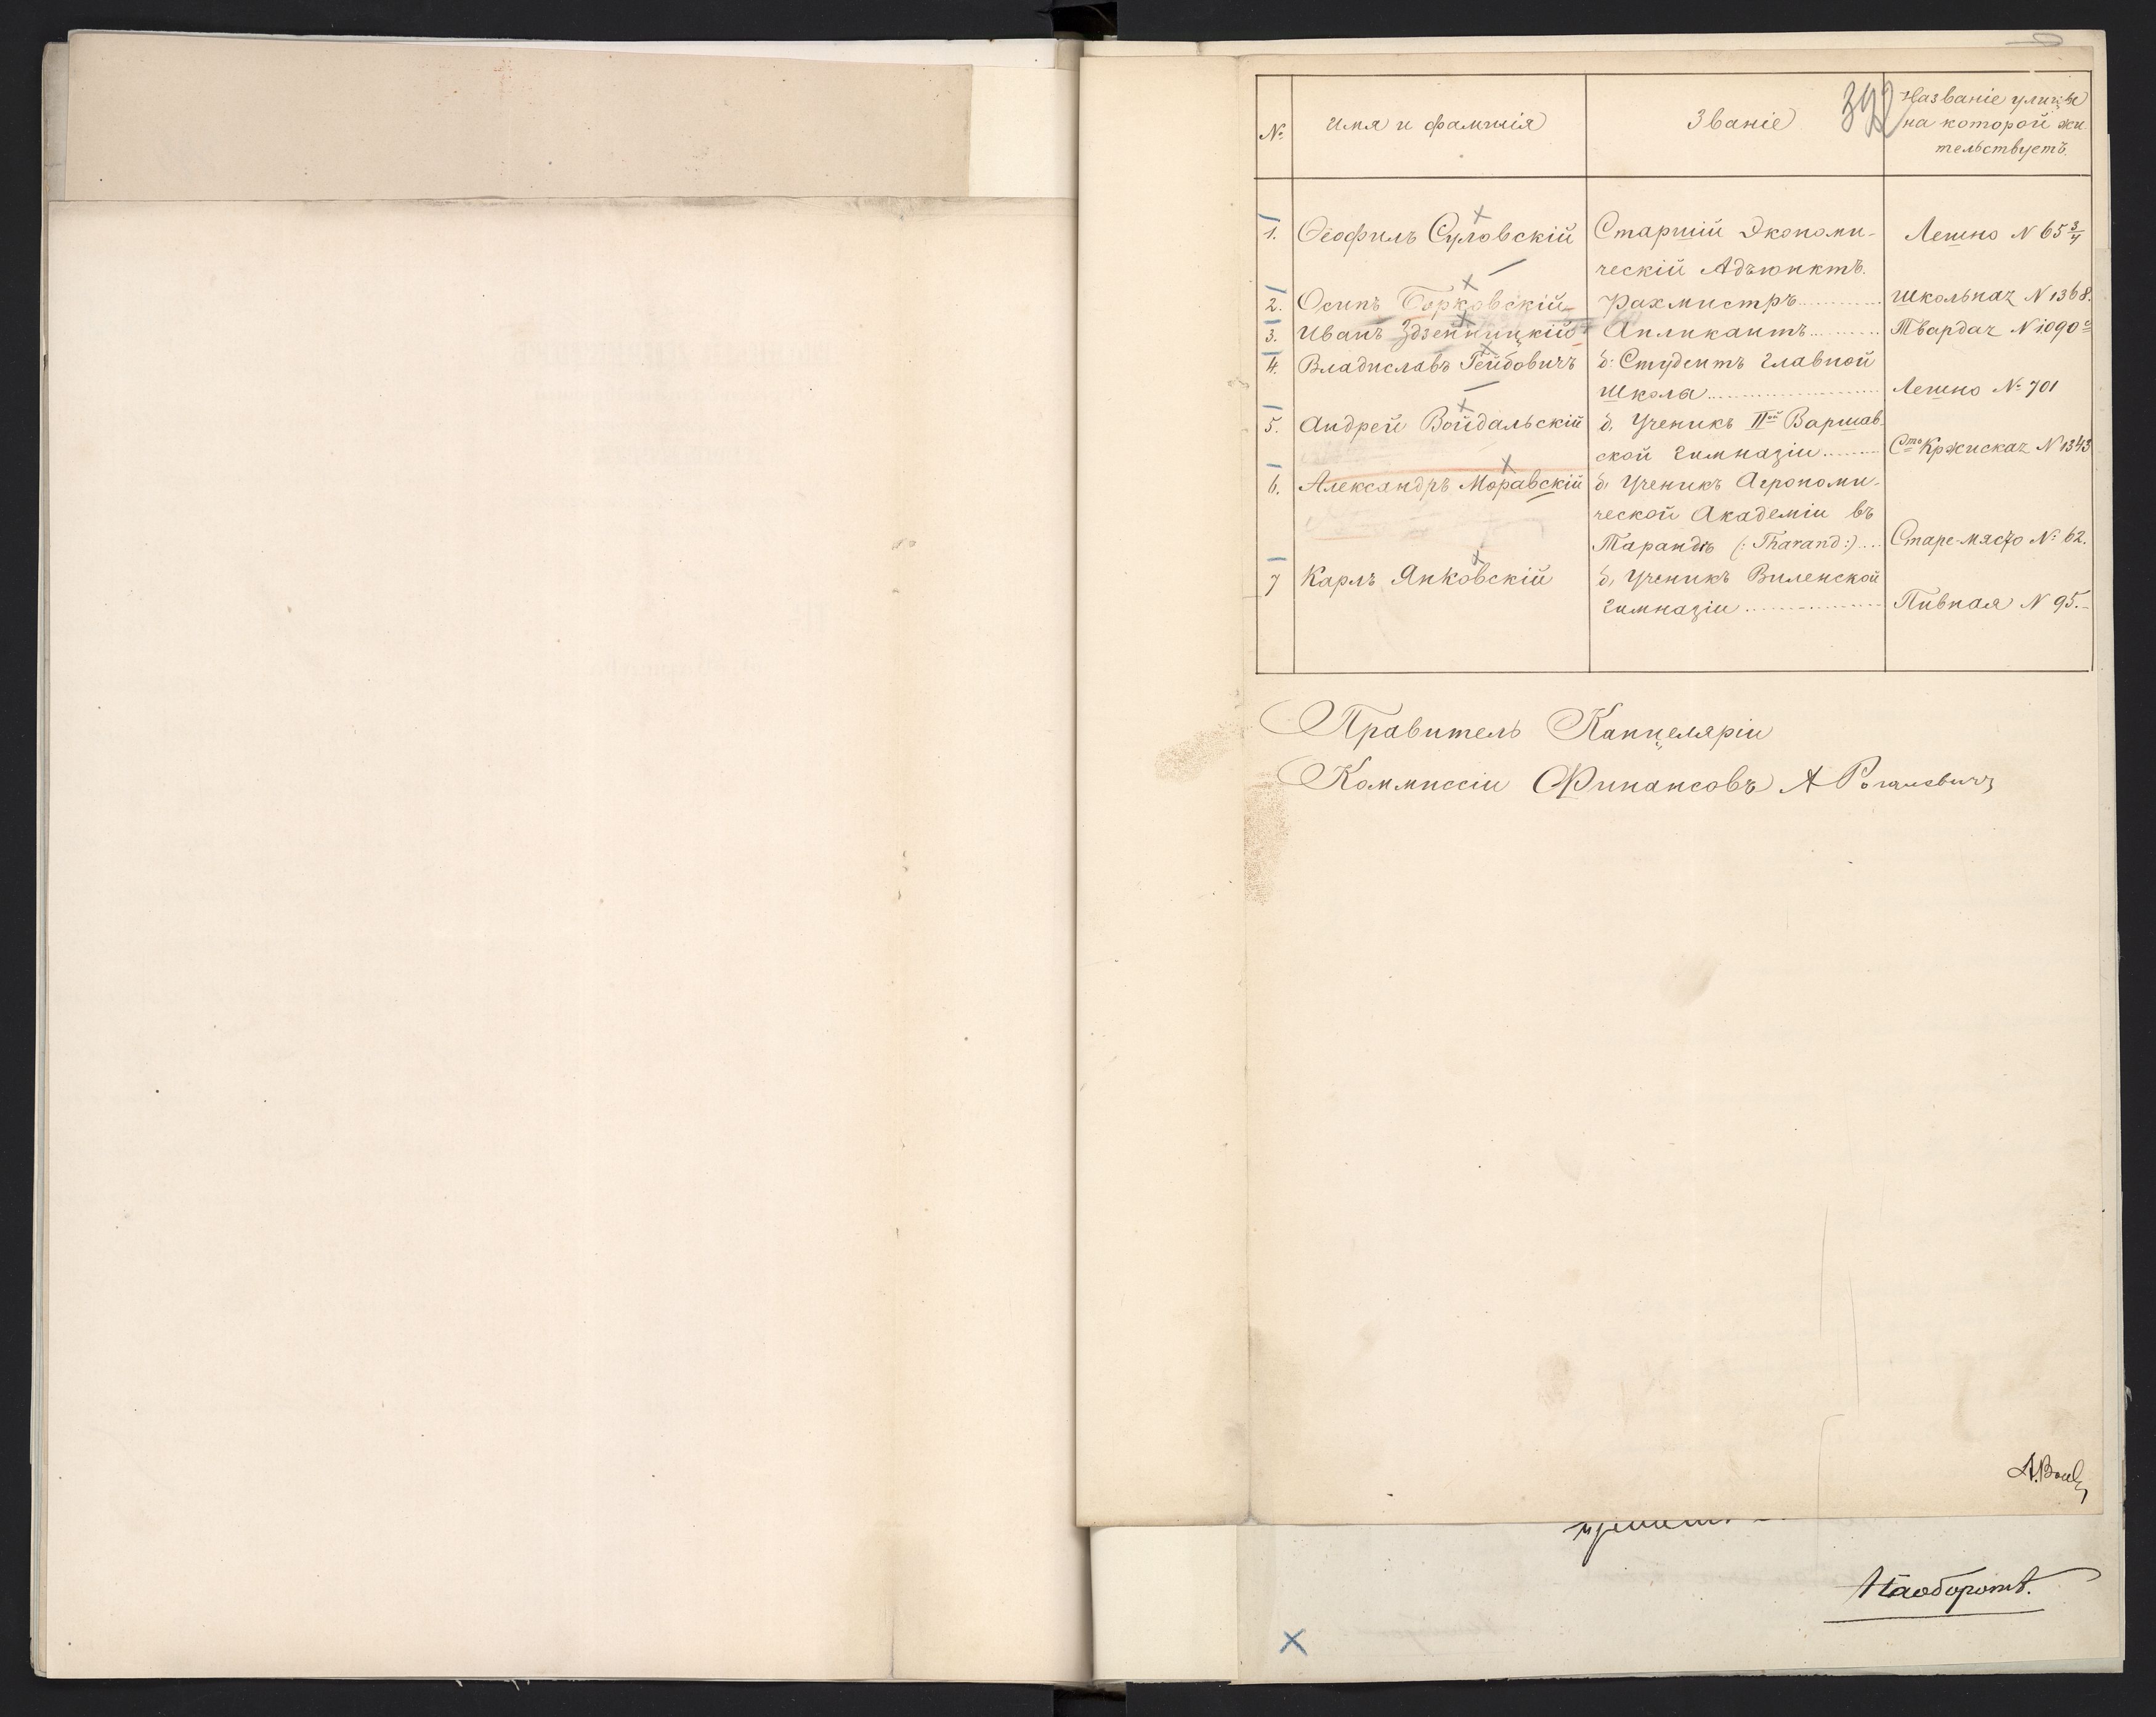 392
№ Имя и фамилія Званіе Названіе улицы
на которой жи
тельствуетъ.
1. Ѳеофилъ Суловскій Старшій Экономи- Лешно N 65 3/4
ческій Адъюнктъ.
2. Осипъ Борковскій Рахмистръ Школьная N 1368.
3. Иванъ Здзенницкій Апликантъ Твардая N 1090 с
4. Владиславъ Гейбовичъ б: Студентъ Главной
Школа Лешно № 701
5. Андрей Войдальскій б. Ученикъ IIой Варшав-
ской Гимназіи Сто Кржиская N 1343
6. Александръ Моравскій б. Ученикъ Агрономи-
ческой Академіи въ
Тарандѣ (: Tharand :) Старе-място № 62.
7 Карлъ Янковскій б. Ученикъ Виленской
Гимназіи Пивная N 95.-
Правитель Канцеляріи
Коммиссіи Финансовъ А
Наоборотъ.